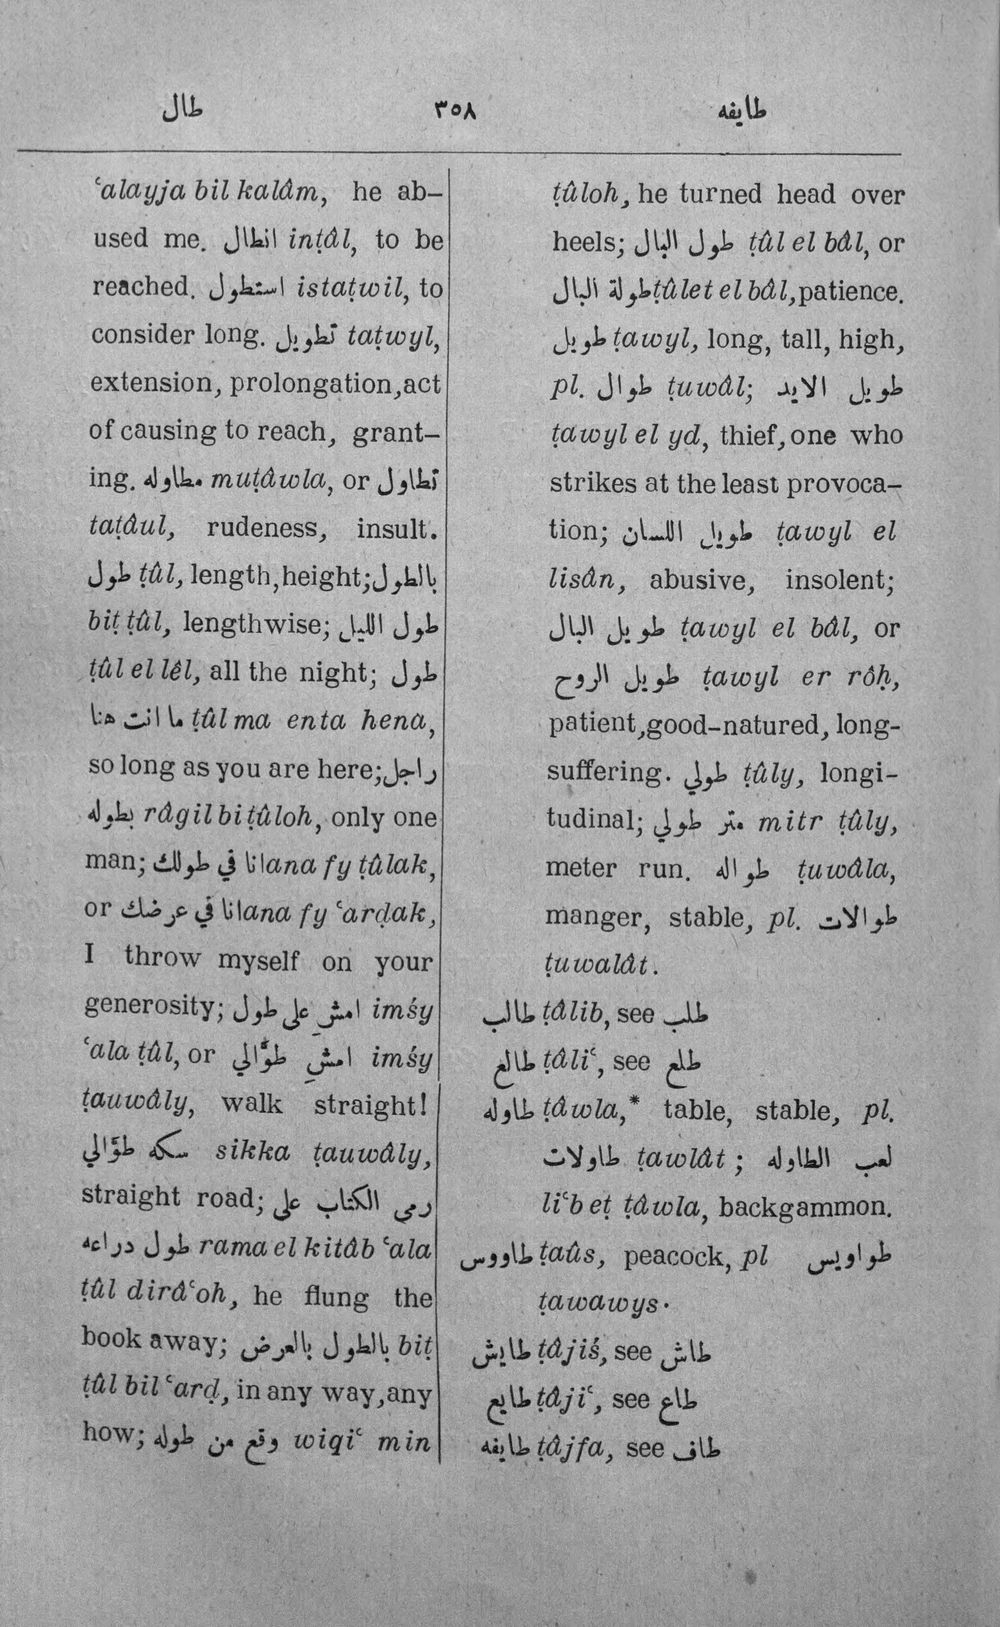 طال ٣٥٨ طايفه
ʿalayja bil kalâm, he ab-
used me. انطال inṭâl, to be
reached. استطول istaṭwil, to
consider long. تطويل taṭwyl,
extension, prolongation,act
of causing to reach, grant-
ing. مطاوله muṭâwla, or تطاول
taṭâul, rudeness, insult.
طول ṭûl, length,height; بالطول
biṭ ṭûl, lengthwise; طول الليل
ṭûl el lêl, all the night; طول
ما انت هنا ṭûl ma enta hena,
so long as you are here; راجل
بطوله râgil bi ṭûloh, only one
man; انا في طولك ana fy ṭûlak,
or انا في عرضك ana fy ʿarḍak,
I throw myself on your
generosity; امشِ على طول imśy
ʿala ṭûl, or امشِ طوَّالي imśy
ṭauwâly, walk straight!
سكه طوَّالي sikka ṭauwâly,
straight road; رمى الكتاب على
طول دراعه rama el kitâb ʿala
ṭûl dirâʿoh, he flung the
book away; بالطول بالعرض biṭ
ṭûl bil ʿarḍ, in any way,any
how; وقع من طوله wiqiʿ min
ṭûloh, he turned head over
heels; طول البال ṭûl el bâl, or
طولة البال ṭûlet el bâl,patience.
طويل ṭawyl, long, tall, high,
pl. طوال ṭuwâl; طويل الايد
ṭawyl el yd, thief,one who
strikes at the least provoca-
tion; طويل اللسان ṭawyl el
lisân, abusive, insolent;
طويل البال ṭawyl el bâl, or
طويل الروح ṭawyl er rôḥ,
patient,good-natured, long-
suffering. طولي ṭûly, longi-
tudinal; متر طولي mitr ṭûly,
meter run. طواله ṭuwâla,
manger, stable, pl. طوالات
ṭuwalât.
طالب ṭâlib, see طلب
طالع ṭâliʿ, see طلع
طاوله ṭâwla,* table, stable, pl.
طاولات ṭawlât ; لعب الطاوله
liʿb eṭ ṭâwla, backgammon.
طاووس ṭaûs, peacock, pl طواويس
ṭawawys.
طايش ṭâjiś, see طاش
طايع ṭâjiʿ, see طاع
طايفه ṭâjfa, see طاف